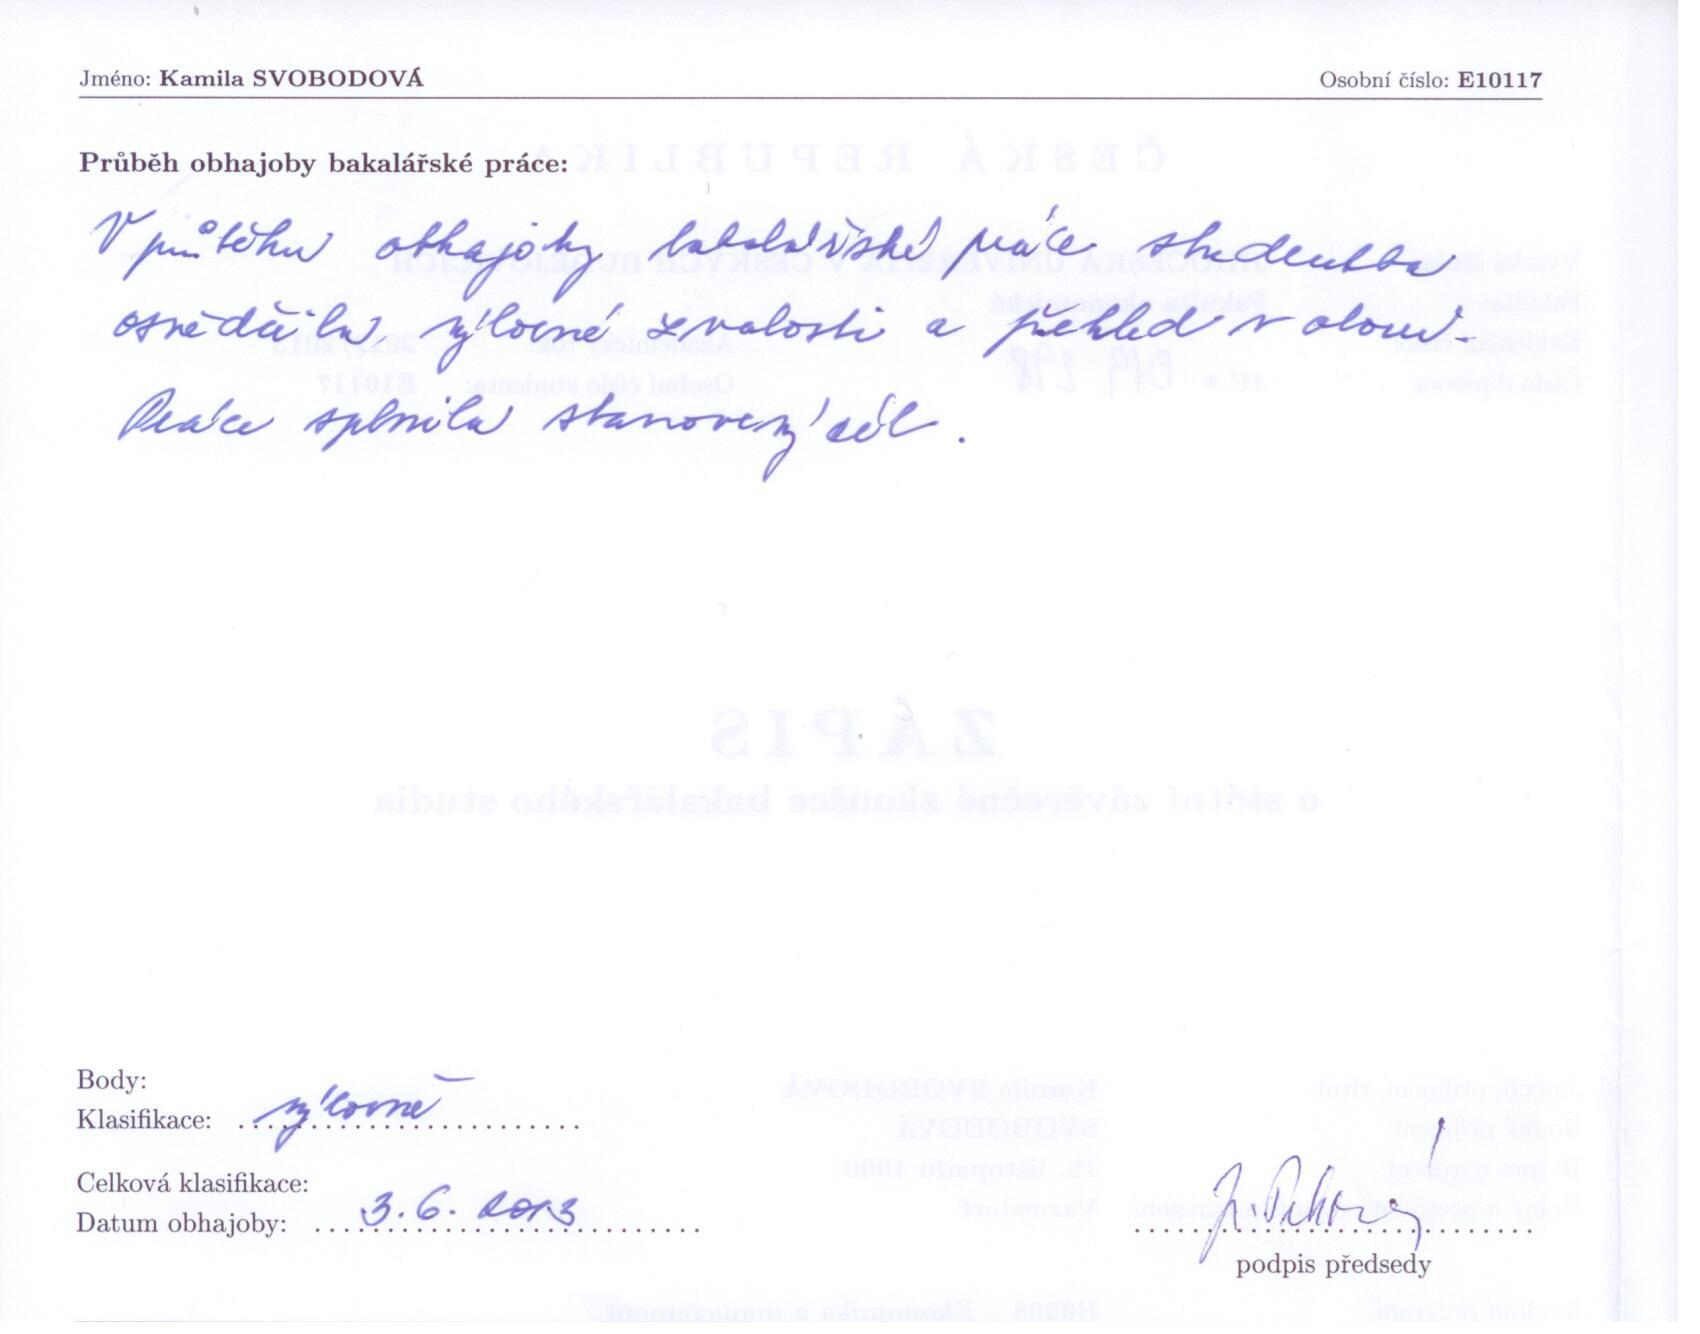 Jméno: Kamila SVOBODOVÁ Osobní číslo: E10117
Průběh obhajoby bakalářské práce:
V průběhu obhajoby bakalářské práce studentka
osvědčila výborné znalosti a přehled v oboru.
Práce splnila stanovený cíl.
Body:
Klasifikace: výborně
Celková klasifikace:
Datum obhajoby: 3.6. 2013
podpis předsedy